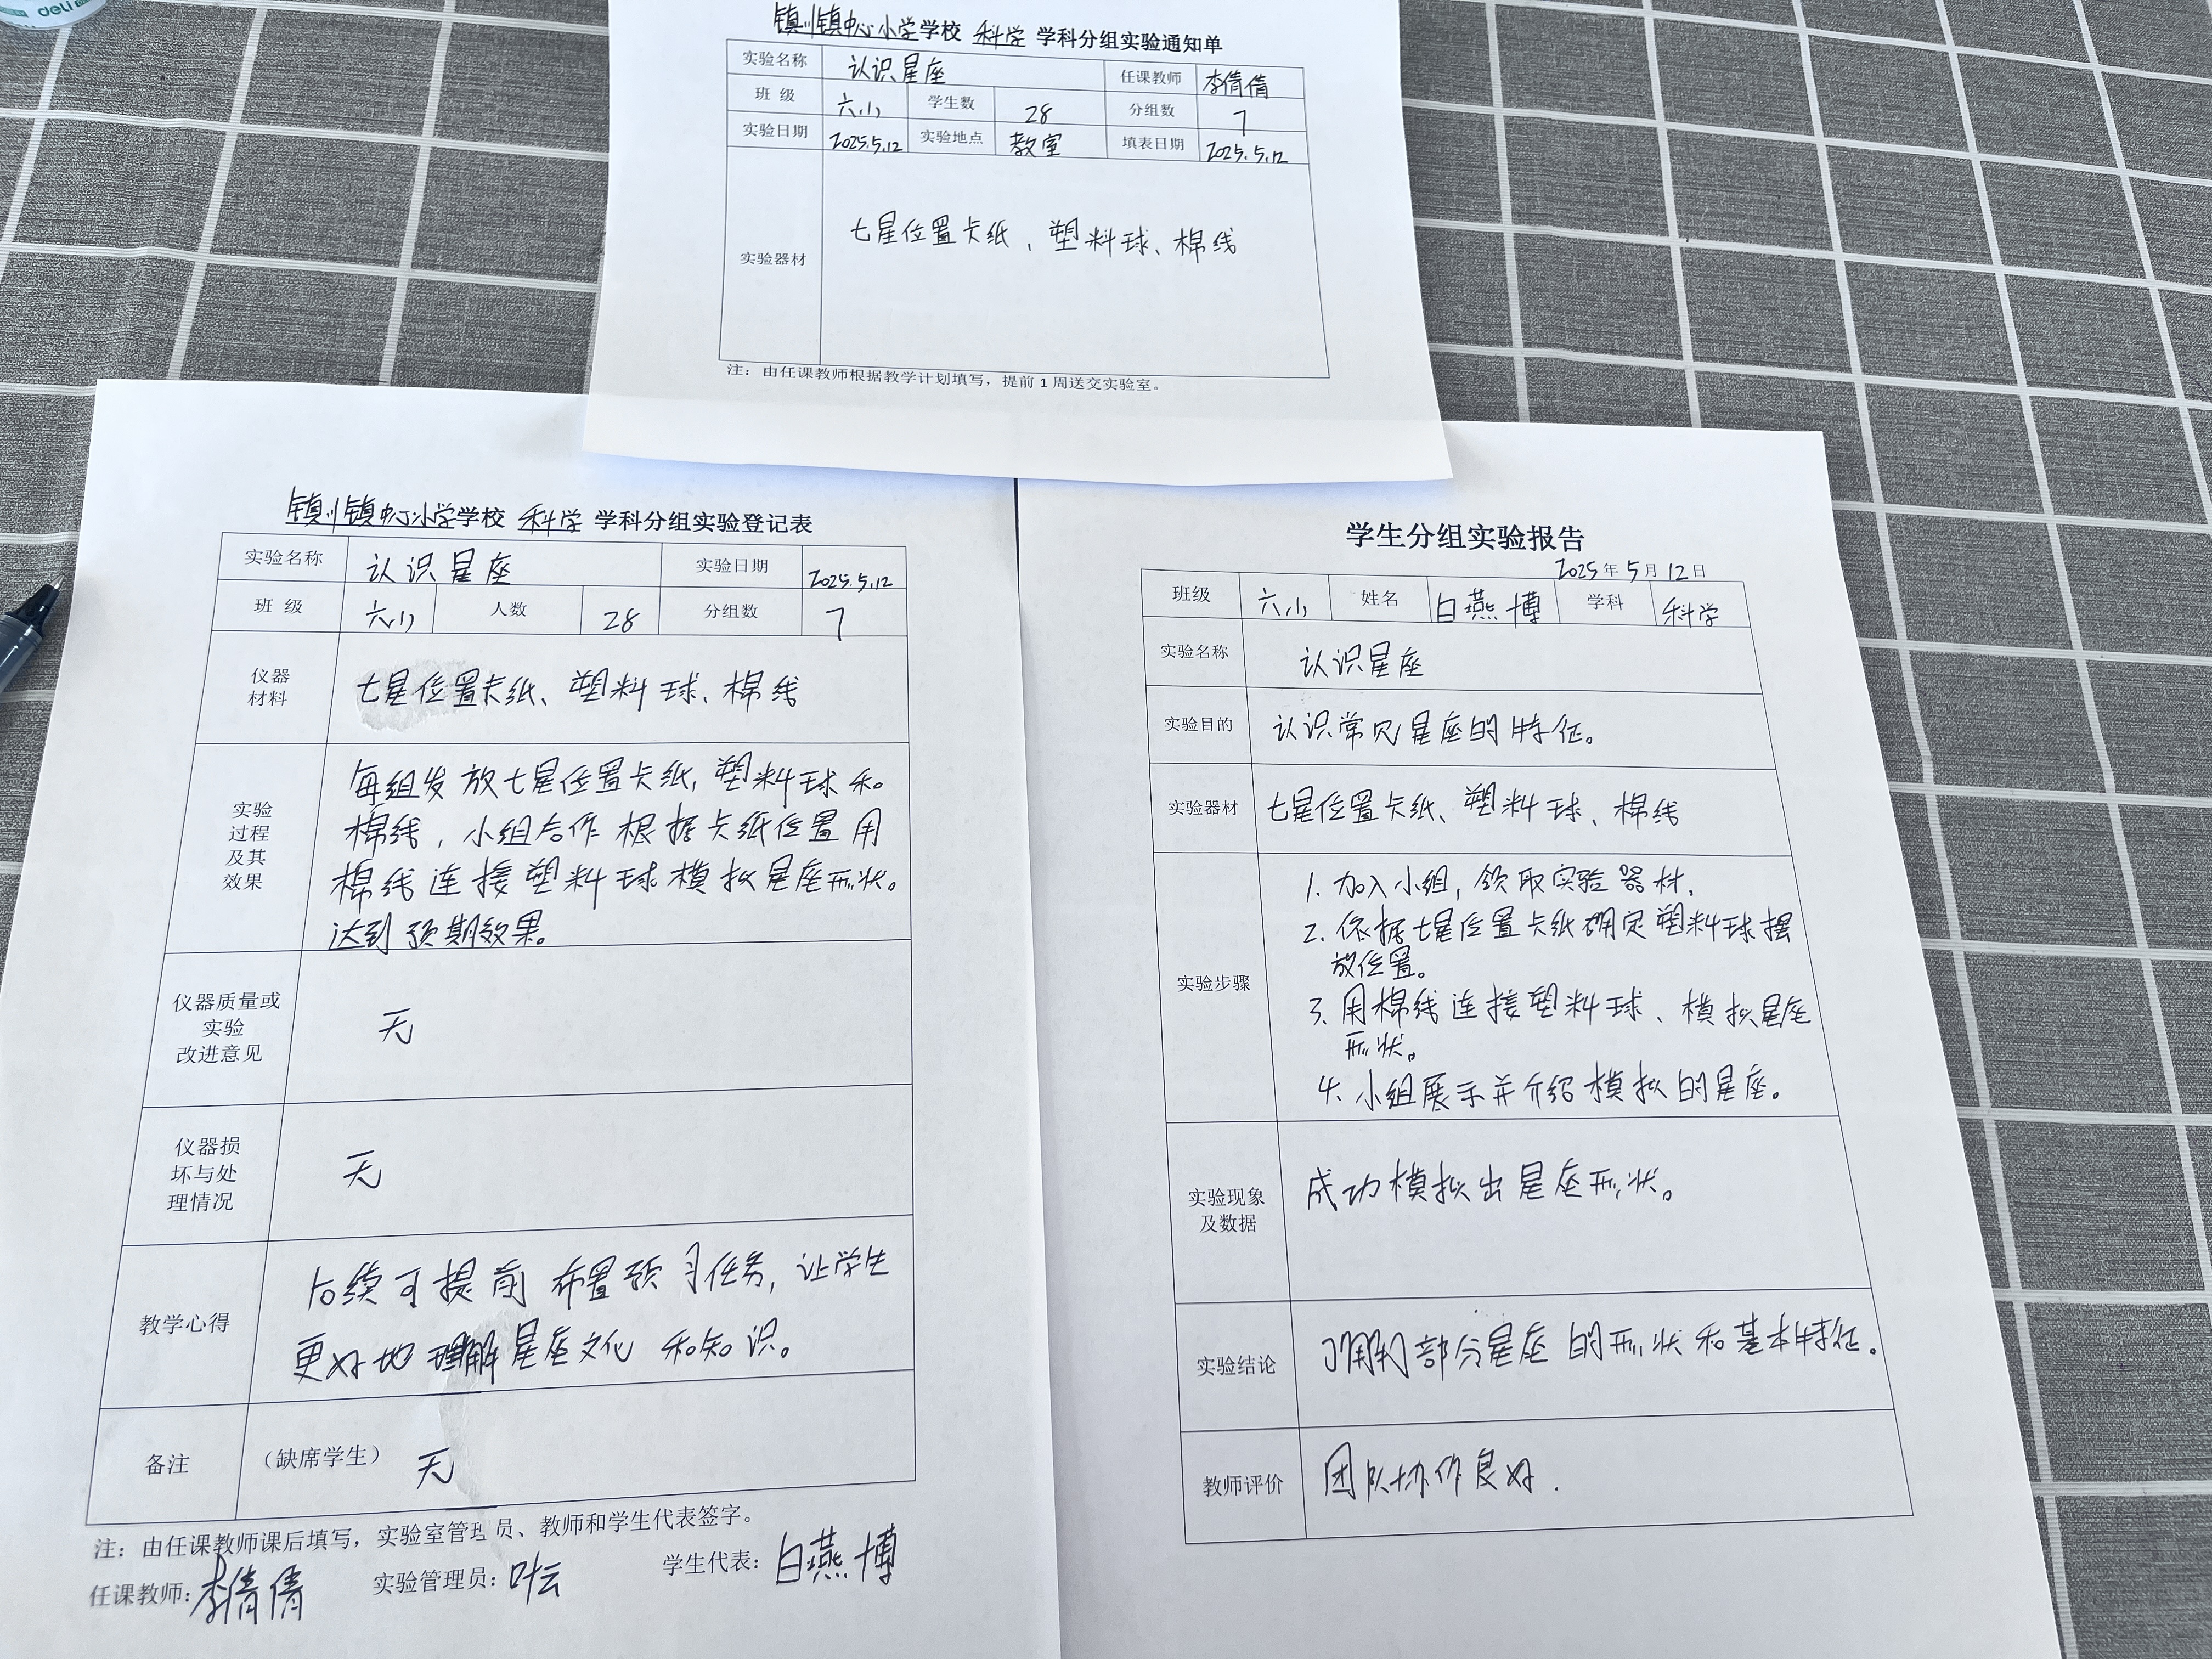 deli
镇川镇中心小学学校 科学 学科分组实验通知单
实验名称 认识星座 任课教师 李倩倩
班 级 六小 学生数 28 分组数 7
实验日期 2025.5.12 实验地点 教室 填表日期 2025.5.12
实验器材 七星位置卡纸、塑料球、棉线
注：由任课教师根据教学计划填写，提前 1 周送交实验室。
镇川镇中心小学学校 科学 学科分组实验登记表
实验名称 认识星座 实验日期 2025.5.12
班 级 六小 人数 28 分组数 7
仪器
材料
七星位置卡纸、塑料球、棉线
实验
过程
及其
效果
每组发放七星位置卡纸，塑料球和
棉线，小组合作根据卡纸位置用
棉线连接塑料球模拟星座形状。
达到预期效果。
仪器质量或
实验
改进意见
无
仪器损
坏与处
理情况
无
教学心得
后续可提前布置预习任务，让学生
更好地理解星座文化和知识。
备注 （缺席学生） 无
注：由任课教师课后填写，实验室管理员、教师和学生代表签字。
任课教师：李倩倩 实验管理员：叶云 学生代表：白燕博
学生分组实验报告
2025年5月12日
班级 六小 姓名 白燕博 学科 科学
实验名称 认识星座
实验目的 认识常见星座的特征。
实验器材 七星位置卡纸、塑料球、棉线
实验步骤
1. 加入小组，领取实验器材.
2. 依据七星位置卡纸确定塑料球摆
放位置。
3. 用棉线连接塑料球、模拟星座
形状。
4. 小组展示并介绍模拟的星座。
实验现象
及数据
成功模拟出星座形状。
实验结论 了解部分星座的形状和基本特征。
教师评价 团队协作良好.